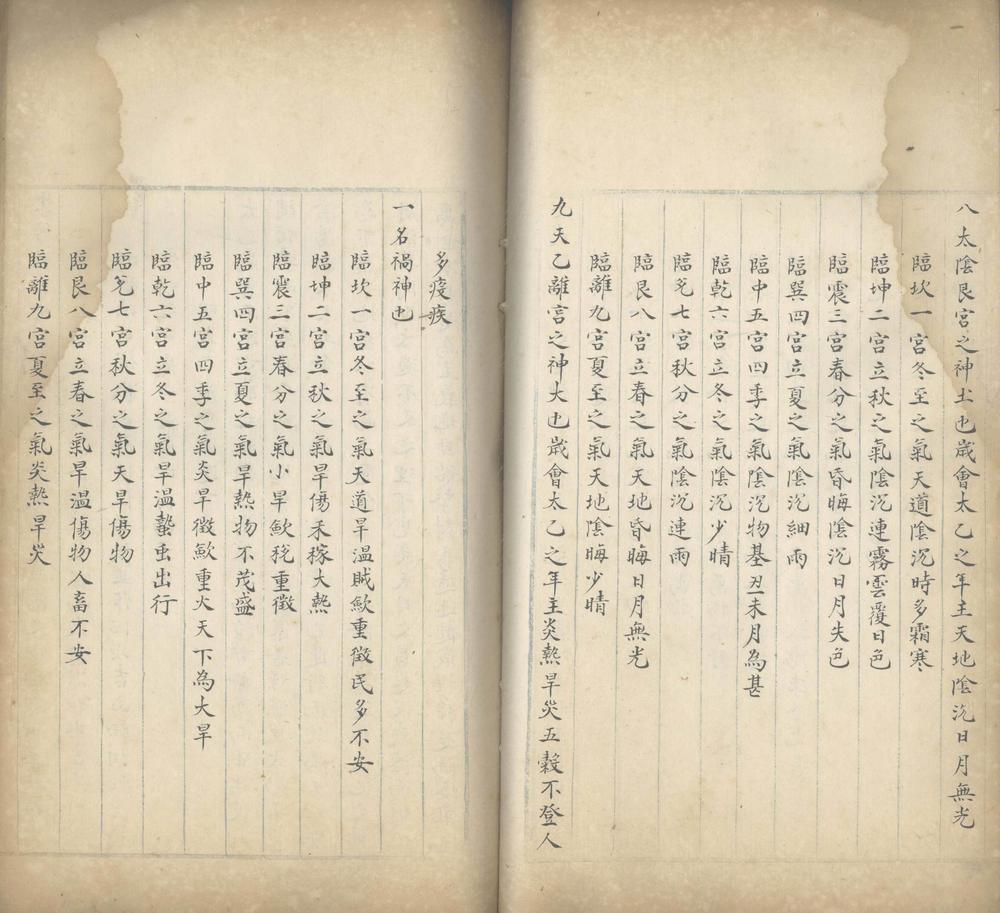 八太陰艮宮之神土也歲會太乙之年主天地陰沉日月無光
臨坎一宮冬至之氣天道陰沉時多霜寒
臨坤二宮立秋之氣陰沉連霧雲覆日色
臨震三宮春分之氣昏晦陰沉日月失色
臨巽四宮立夏之氣陰沉細雨
臨中五宮四季之氣陰沉物基丑未月為甚
臨乾六宮立冬之氣陰沉少晴
臨兊七宮秋分之氣陰沉連雨
臨艮八宮立春之氣天地昏晦日月無光
臨離九宮夏至之氣天地陰晦少晴
九天乙離言之神火也歲會太乙之年主炎熱旱災五穀不登人
多疫疾
一名禍神也
臨坎一宮冬至之氣天道旱溫賊歛重徵民多不安
臨坤二宮立秋之氣旱傷禾稼大熱
臨震三宮春分之氣小旱歛稅重徵
臨巽四宮立夏之氣旱熱物不茂盛
臨中五宮四季之氣炎旱徵歛重火天下為大旱
臨乾六宮立冬之氣旱溫蟄虫出行
臨兊七宮秋分之氣天旱傷物
臨艮八宮立春之氣旱溫傷物人畜不安
臨離九宮夏至之氣炎熱旱災